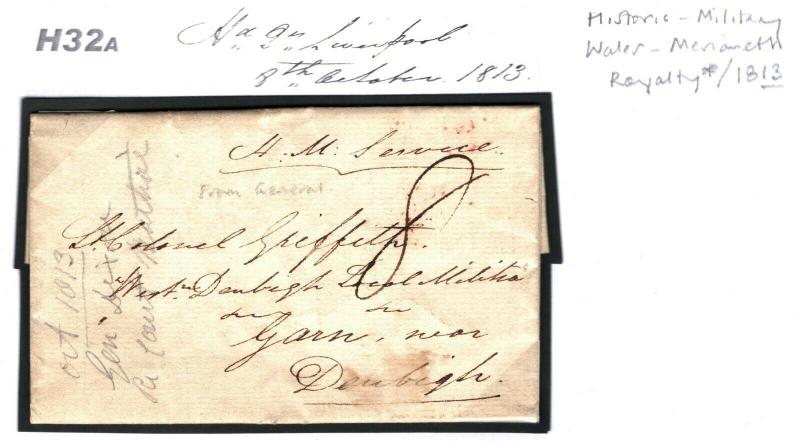 H32A
Hd Qrs Liverpool
8th October. 1813.
Historic - Military
Wales - Merioneth
Royalty* / 1813
H. M. Service.
From General.
8
Lt Colonel Griffith.
Westn Denbigh Local Militia
Garn, near
Denbigh.
Oct 1813
Gen